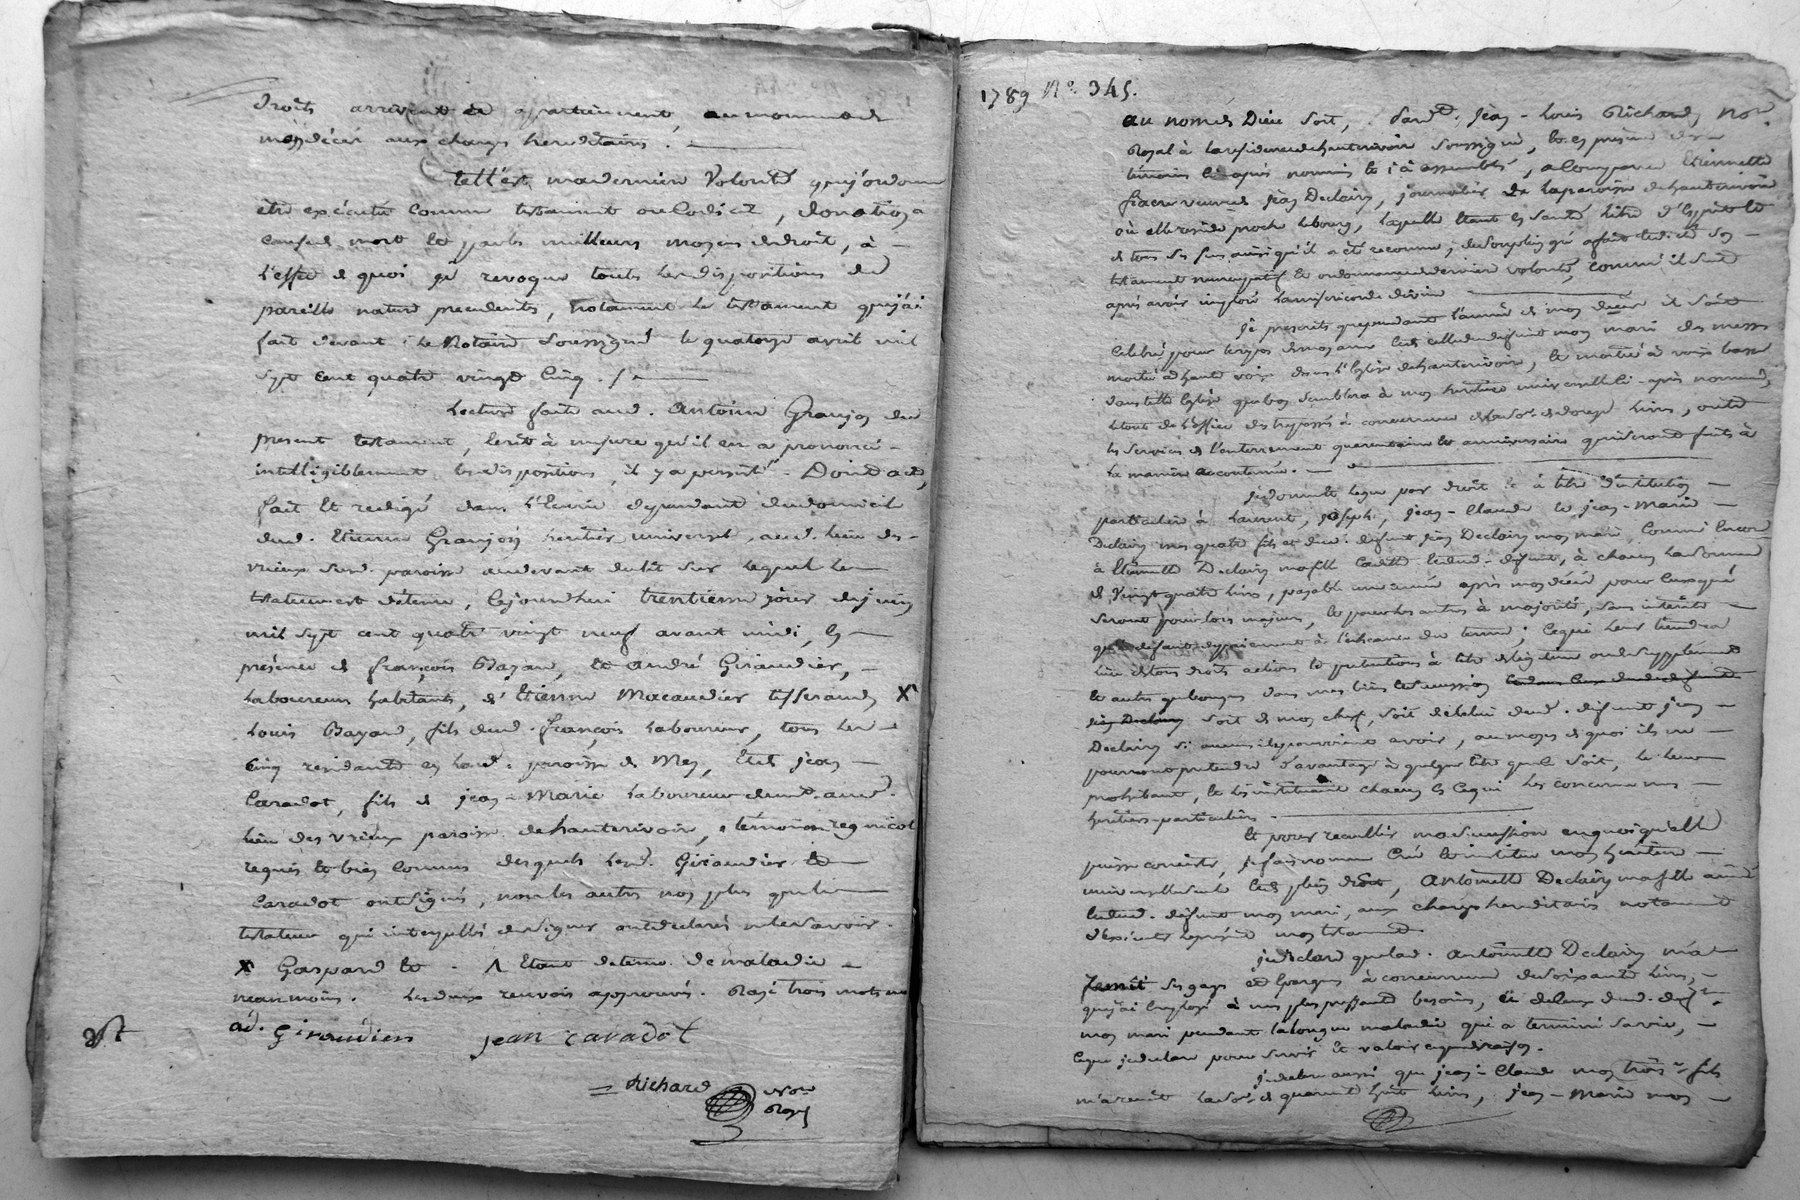 droits arrivent et appartiennent, au moment de
mon décéz aux charges hereditaires.
telle est ma derniere volonté que j'ordonne
être exécutée comme testament ou codicil, donation a
cause de mort et par les meilleurs moyens de droit, à
l'effet de quoi je revoque toutes les dispositions de
pareille nature precedentes, notamment le testament que j'ai
fait devant le Notaire soussigné le quatorze avril mil
sept cent quatre vingt cinq.
Lecture faite aud. Antoine Granjon du
present testament, écrit à mesure qu'il en a prononcé
intelligiblement les dispositions, il y a persisté. Dont acte,
fait et redigé dans l'Ecurie dependante du domicil
dud. Etienne Granjon heritier universel, aud. lieu des
vrieux susd. paroisse au devant du lit sur lequel le
testateur est détenu, cejourdhui trentieme jour de juin
mil sept cent quatre vingt neuf avant midi, en
présence de françois Bazan, et andré Giraudier,
laboureurs habitants, d'Etienne Macaudier tisserand X
Louis Bayard, fils dud. françois laboureur, tous les
cinq residants en lad. paroisse de Mey, et de jean
Caradot, fils de jean-Marie laboureur demt. aud.
lieu des vrieux paroisse de hauterivoir, temoins regnicol
requis et bien connus desquels lesd. Giraudier et
Caradot ont signé, non les autres non plus que le
testateur qui interpellés de signer ont declaré ne le savoir.
X Gaspard et . Λ Etant detenu de maladie
neanmoins. Les deux renvois approuvés. Rayé trois mots nu
ad. Giraudier jean caradot
Richard Nore
Royal
1789 No. 345.
au nom de Dieu soit, pardt. Jean-Louis Richard, Nore.
Royal à la residence de hauterivoir soussigné, et en présence des
témoins ci après nommés et à assemblés, a comparu Etiennette
veuve de jean Declairy, journalier de la paroisse de hauterivoir
où elle reside proche le bourg, laquelle étant en santé, libre d'esprit et
de tous ses sens ainsi qu'il a été reconnu, de son plein gré a fait et dicté son
testament nuncupatif et ordonnance de derniere volonté, comme il suit
après avoir imploré la misericorde divine
je prescrits que pendant l'année de mon décéz il soit
celebré pour le repos de mon ame et de celle de defunt mon mari des messes
moitié à haute voix dans l'Eglise de hauterivoir, et moitié à voix basse
dans telle Eglise que bon semblera à mon heritiere universelle ci-après nommée,
le tout de l'office des trepassés à concurrence de la some de douze livres, outre
les services de l'enterrement quarantaine et anniversaire qui seront faits à
la maniere accoutumée.
je donne et legue par droit et à titre d'institution
particuliere à Laurent, joseph, jean-Claude et jean-Marie
Declairy mes quatre fils et dud. defunt jean Declairy mon mari, comme encor
à Etiennette Declairy ma fille et dud. defunt, à chacun la somme
de vingt quatre livres, payable une année après mon décéz pour ceux qui
seront pour lors majeurs, et pour les autres à majorité, sans interêts
qu'à defaut de payement à l'échéance du terme; ce qui leur tiendra
lieu de tous droits actions et pretentions à titre de legitime ou de supplément
et autre quelconque dans mes biens et succession
jean Declairy soit de mon chef, soit de celui dud. defunt jean
Declairy si aucuns ils pouvoient avoir, au moyen de quoi ils ne
pourront pretendre d'avantage à quelque titre que ce soit, le leur
prohibant, et les instituant chacun en ce qui les concerne mes
heritiers particuliers.
et pour recueillir ma succession en quoi qu'elle
puisse consister, je fais nomme Crée et institue mon heritiere
universelle seule et de plein droit, Antoinette Declairy ma fille ainée
et dud. defunt mon mari, aux charges hereditaires notamment
d'executer le présent mon testament
je declare que lad. Antoinette Declairy m'a
remit ses gages et Epargnes à concurrence de soixante livres,
que j'ai employé à mes plus pressants besoins, et à ceux dud. deft.
mon mari pendant la longue maladie qui a terminé sa vie,
ce que je declare pour servir et valoir ce que de raison.
je declare aussi que jean-Claude mon troise. fils
m'a remit la some de quarante huit livres, jean-Marie mon